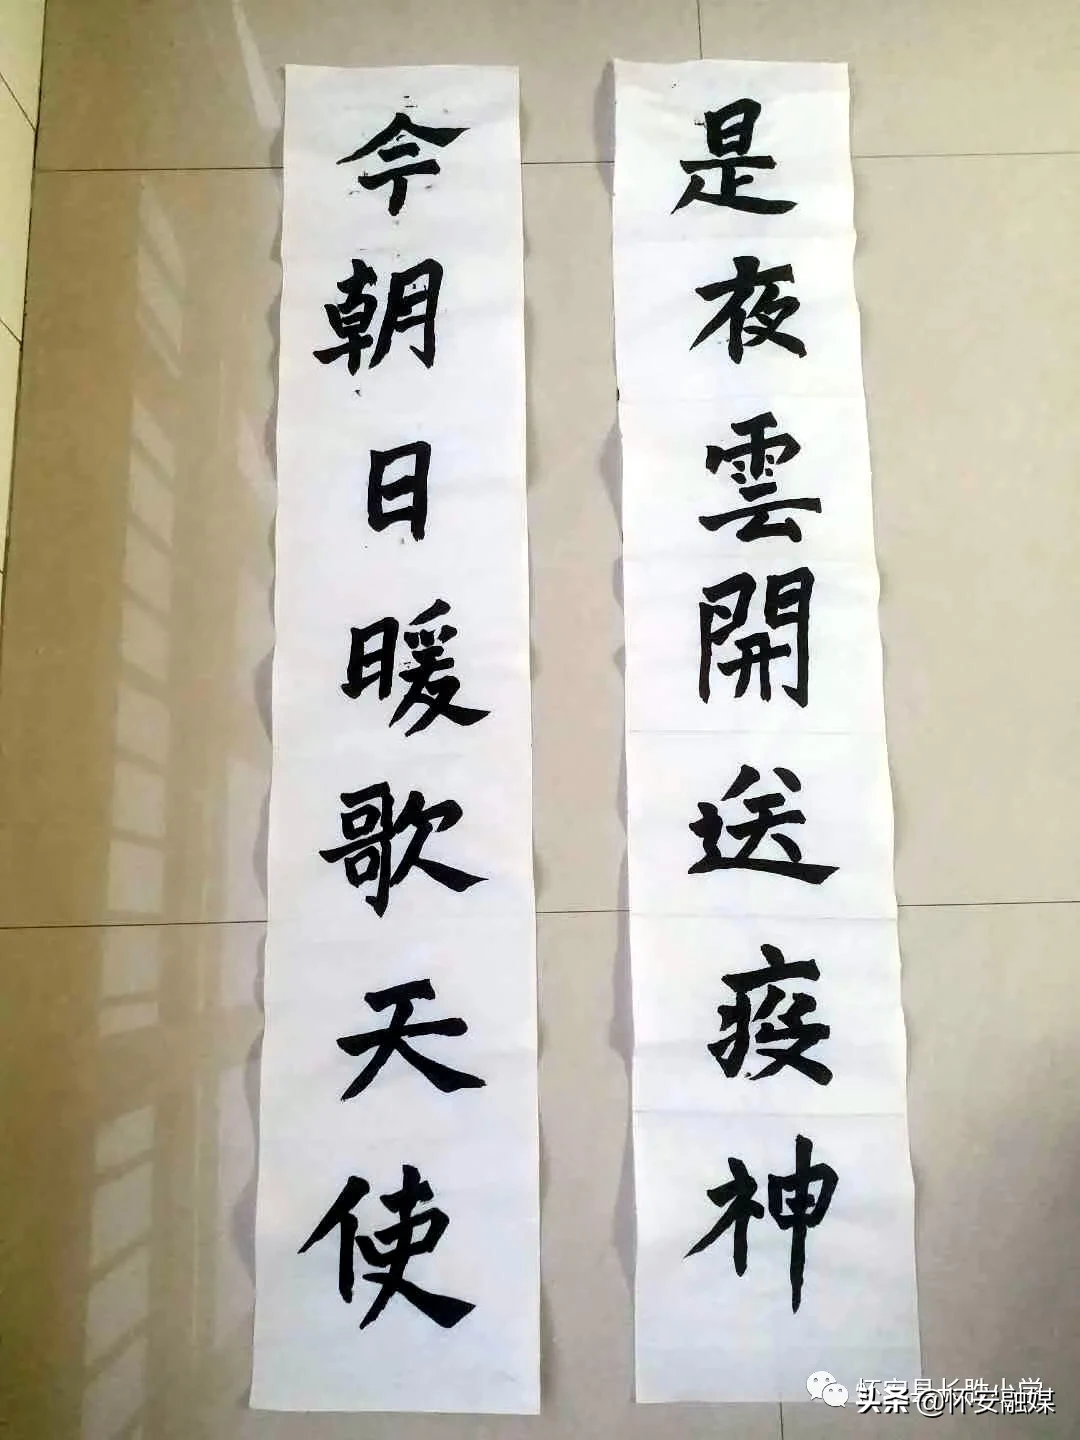 是夜雲開送疫神
今朝日暖歌天使
怀安县长胜小学
头条@怀安融媒